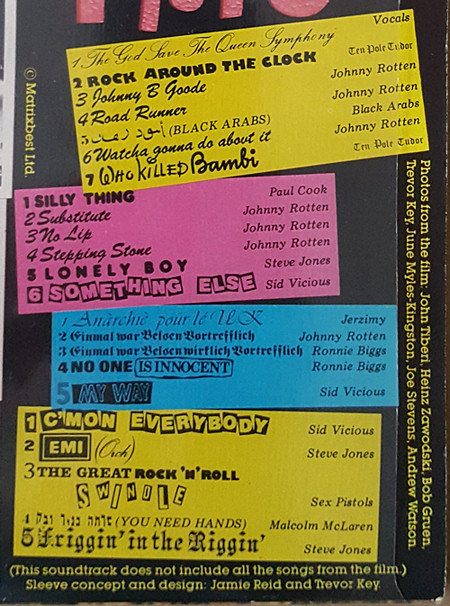 Vocals
1. The God Save The Queen Symphony
2 ROCK AROUND THE CLOCK Ten Pole Tudor
3 Johnny B Goode Johnny Rotten
4 Road Runner Johnny Rotten
5 (BLACK ARABS) Black Arabs
6 Watcha gonna do about it Johnny Rotten
7 WHO KILLED Bambi Ten Pole Tudor
1 SILLY THING Paul Cook
2 Substitute Johnny Rotten
3 No Lip Johnny Rotten
4 Stepping Stone Johnny Rotten
5 LONELY BOY Steve Jones
6 SOMETHING ELSE Sid Vicious
1 Anarchie pour le UK Jerzimy
2 Einmal war Belsen Vortrefflich Johnny Rotten
3 Einmal war Belsen wirklich Vortrefflich Ronnie Biggs
4 NO ONE IS INNOCENT Ronnie Biggs
5 MY WAY Sid Vicious
1 C'MON EVERYBODY Sid Vicious
2 EMI (Orch) Steve Jones
3 THE GREAT ROCK 'N' ROLL
SWINDLE Sex Pistols
4 (YOU NEED HANDS) Malcolm McLaren
5 Friggin' in the Riggin' Steve Jones
(This soundtrack does not include all the songs from the film.)
Sleeve concept and design: Jamie Reid and Trevor Key.
© Matrixbest Ltd.
Photos from the film: John Tiberi, Heinz Zawodski, Bob Gruen,
Trevor Key, June Myles-Kingston, Joe Stevens, Andrew Watson.